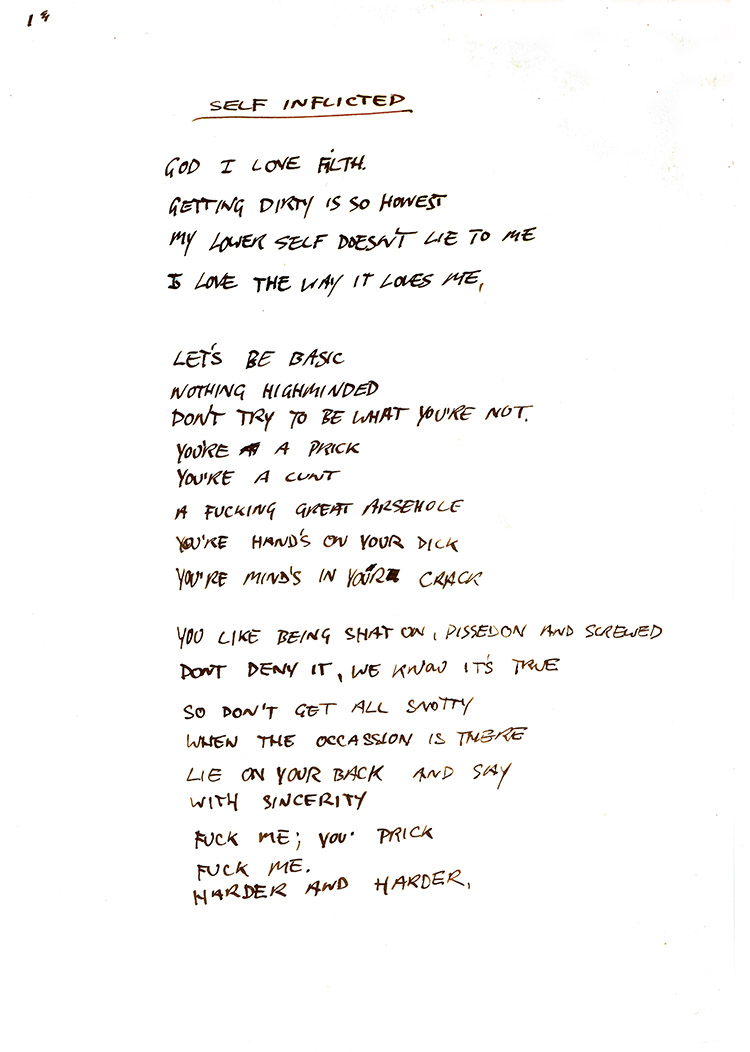 SELF INFLICTED
GOD I LOVE FILTH.
GETTING DIRTY IS SO HONEST
MY LOWER SELF DOESN'T LIE TO ME
I LOVE THE WAY IT LOVES ME,
LET'S BE BASIC
NOTHING HIGHMINDED
DON'T TRY TO BE WHAT YOU'RE NOT.
YOU'RE A PRICK
YOU'RE A CUNT
A FUCKING GREAT ARSEHOLE
YOU'RE HAND'S ON YOUR DICK
YOU'RE MIND'S IN YOUR CRACK
YOU LIKE BEING SHAT ON, PISSEDON AND SCREWED
DON'T DENY IT, WE KNOW IT'S TRUE
SO DON'T GET ALL SNOTTY
WHEN THE OCCASSION IS THERE
LIE ON YOUR BACK AND SAY
WITH SINCERITY
FUCK ME; YOU PRICK
FUCK ME.
HARDER AND HARDER,